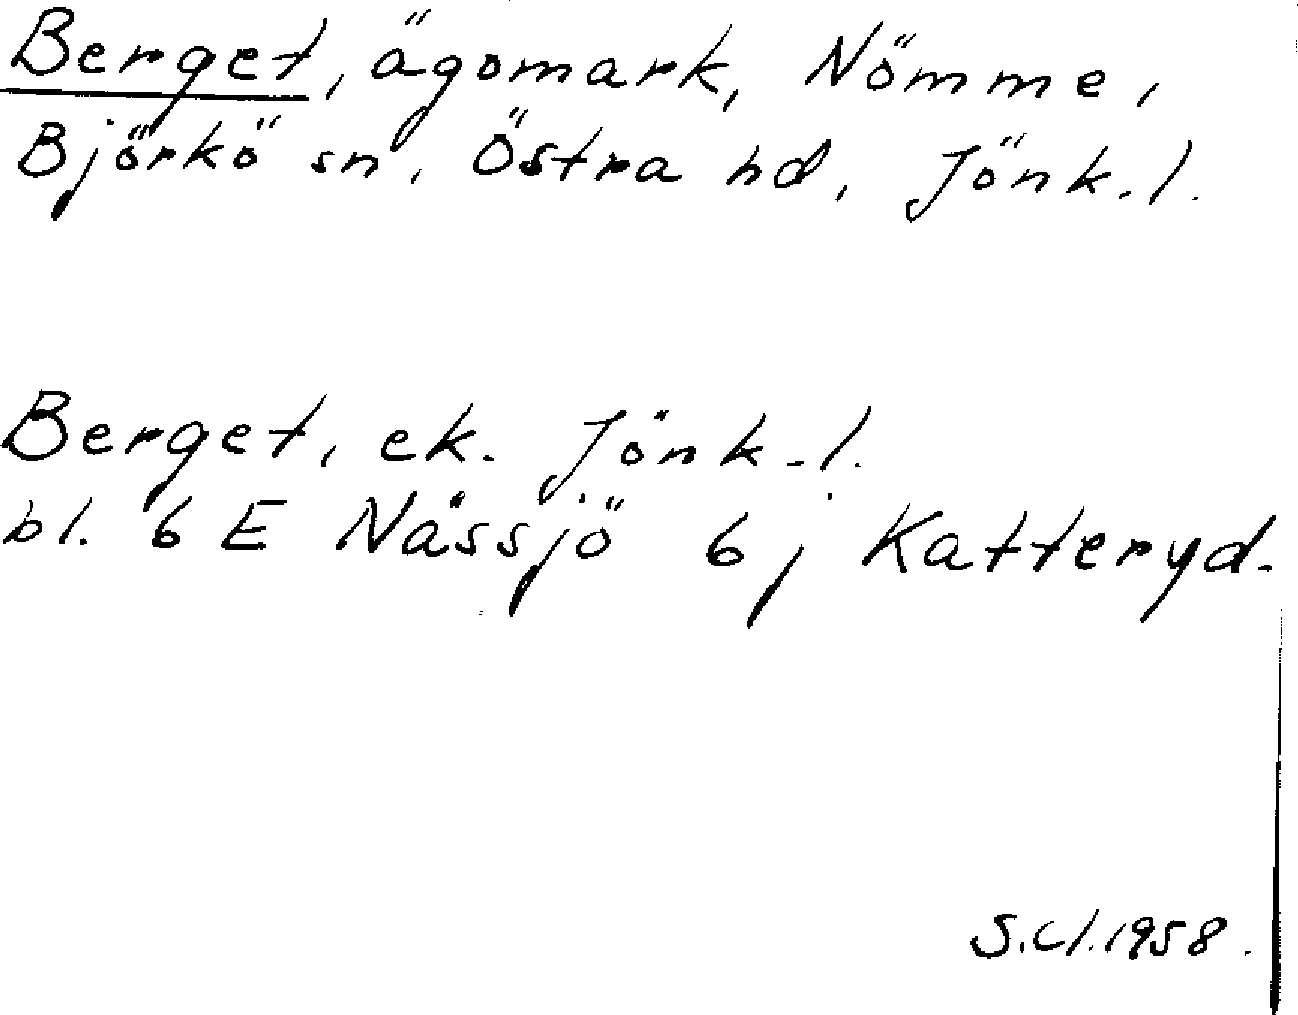 Berget, ägomark, Nömme,
Björkö sn, Östra hd, Jönk.l.
Berget, ek. Jönk.l.
bl. 6 E Nässjö 6 j Katteryd.
S.Cl.1958.